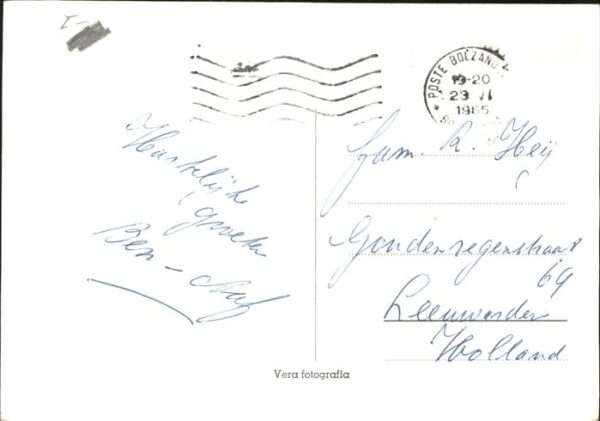 I-
POSTE BOLZANO
19-20
23 VI
1965
Hartelijke
groeten
Ben -
Fam. R. Heij
Goudenregenstraat
69
Leeuwarden
Holland
Vera fotografia